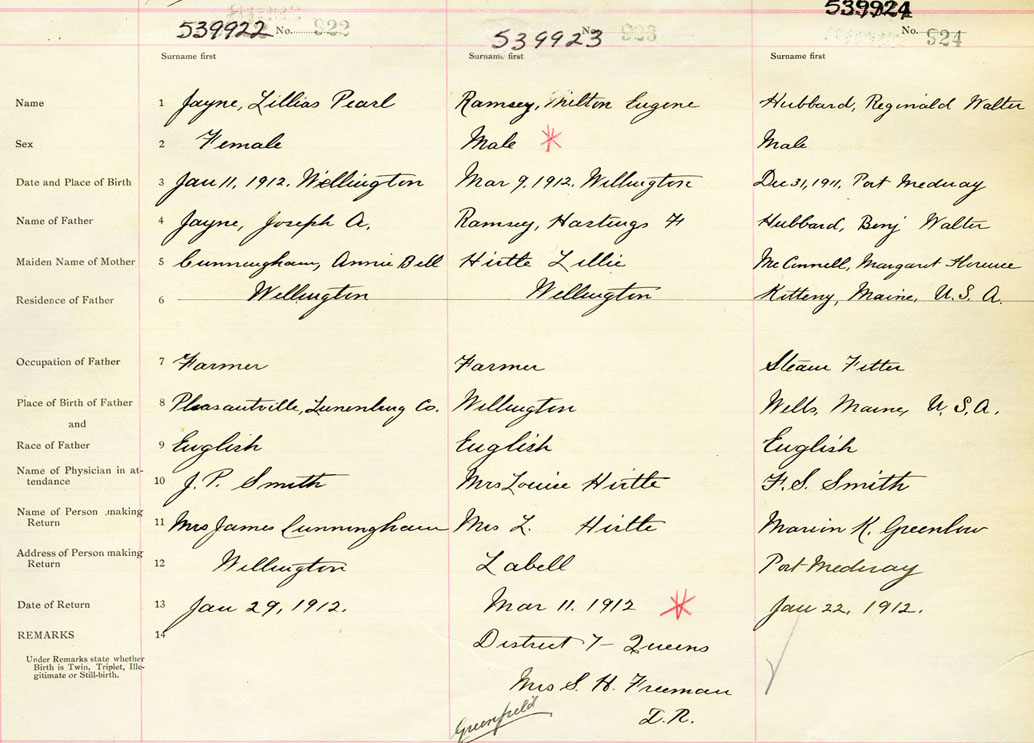 539922 No. 922
539923 No. 923
539924
No. 924
Surname first Surname first Surname first
Name 1 Jayne, Lillias Pearl Ramsey, Milton Eugene Hubbard, Reginald Walter
Sex 2 Female Male Male
Date and Place of Birth 3 Jan 11, 1912. Wellington Mar 9, 1912. Wellington Dec 31, 1911, Port Medway
Name of Father 4 Jayne, Joseph A. Ramsey, Hastings H Hubbard, Benj Walter
Maiden Name of Mother 5 Cunningham, Annie Bell Hirtle Lillie McConnell, Margaret Florence
Residence of Father 6 Wellington Wellington Kitteny, Maine, U.S.A.
Occupation of Father 7 Farmer Farmer Steam Fitter
Place of Birth of Father 8 Pleasantville, Lunenburg Co. Wellington Wells, Maine, U.S.A.
and
Race of Father 9 English English English
Name of Physician in at-
tendance 10 J. P. Smith Mrs Louise Hirtle F. S. Smith
Name of Person making
Return 11 Mrs James Cunningham Mrs L. Hirtle Marion K. Greenlow
Address of Person making
Return 12 Wellington Labell Port Medway
Date of Return 13 Jan 29, 1912. Mar 11. 1912 Jan 22, 1912.
REMARKS 14
District 7 - Queens
Under Remarks state whether
Birth is Twin, Triplet, Ille-
gitimate or Still-birth.
Mrs S. H. Freeman
D.R.
Greenfield